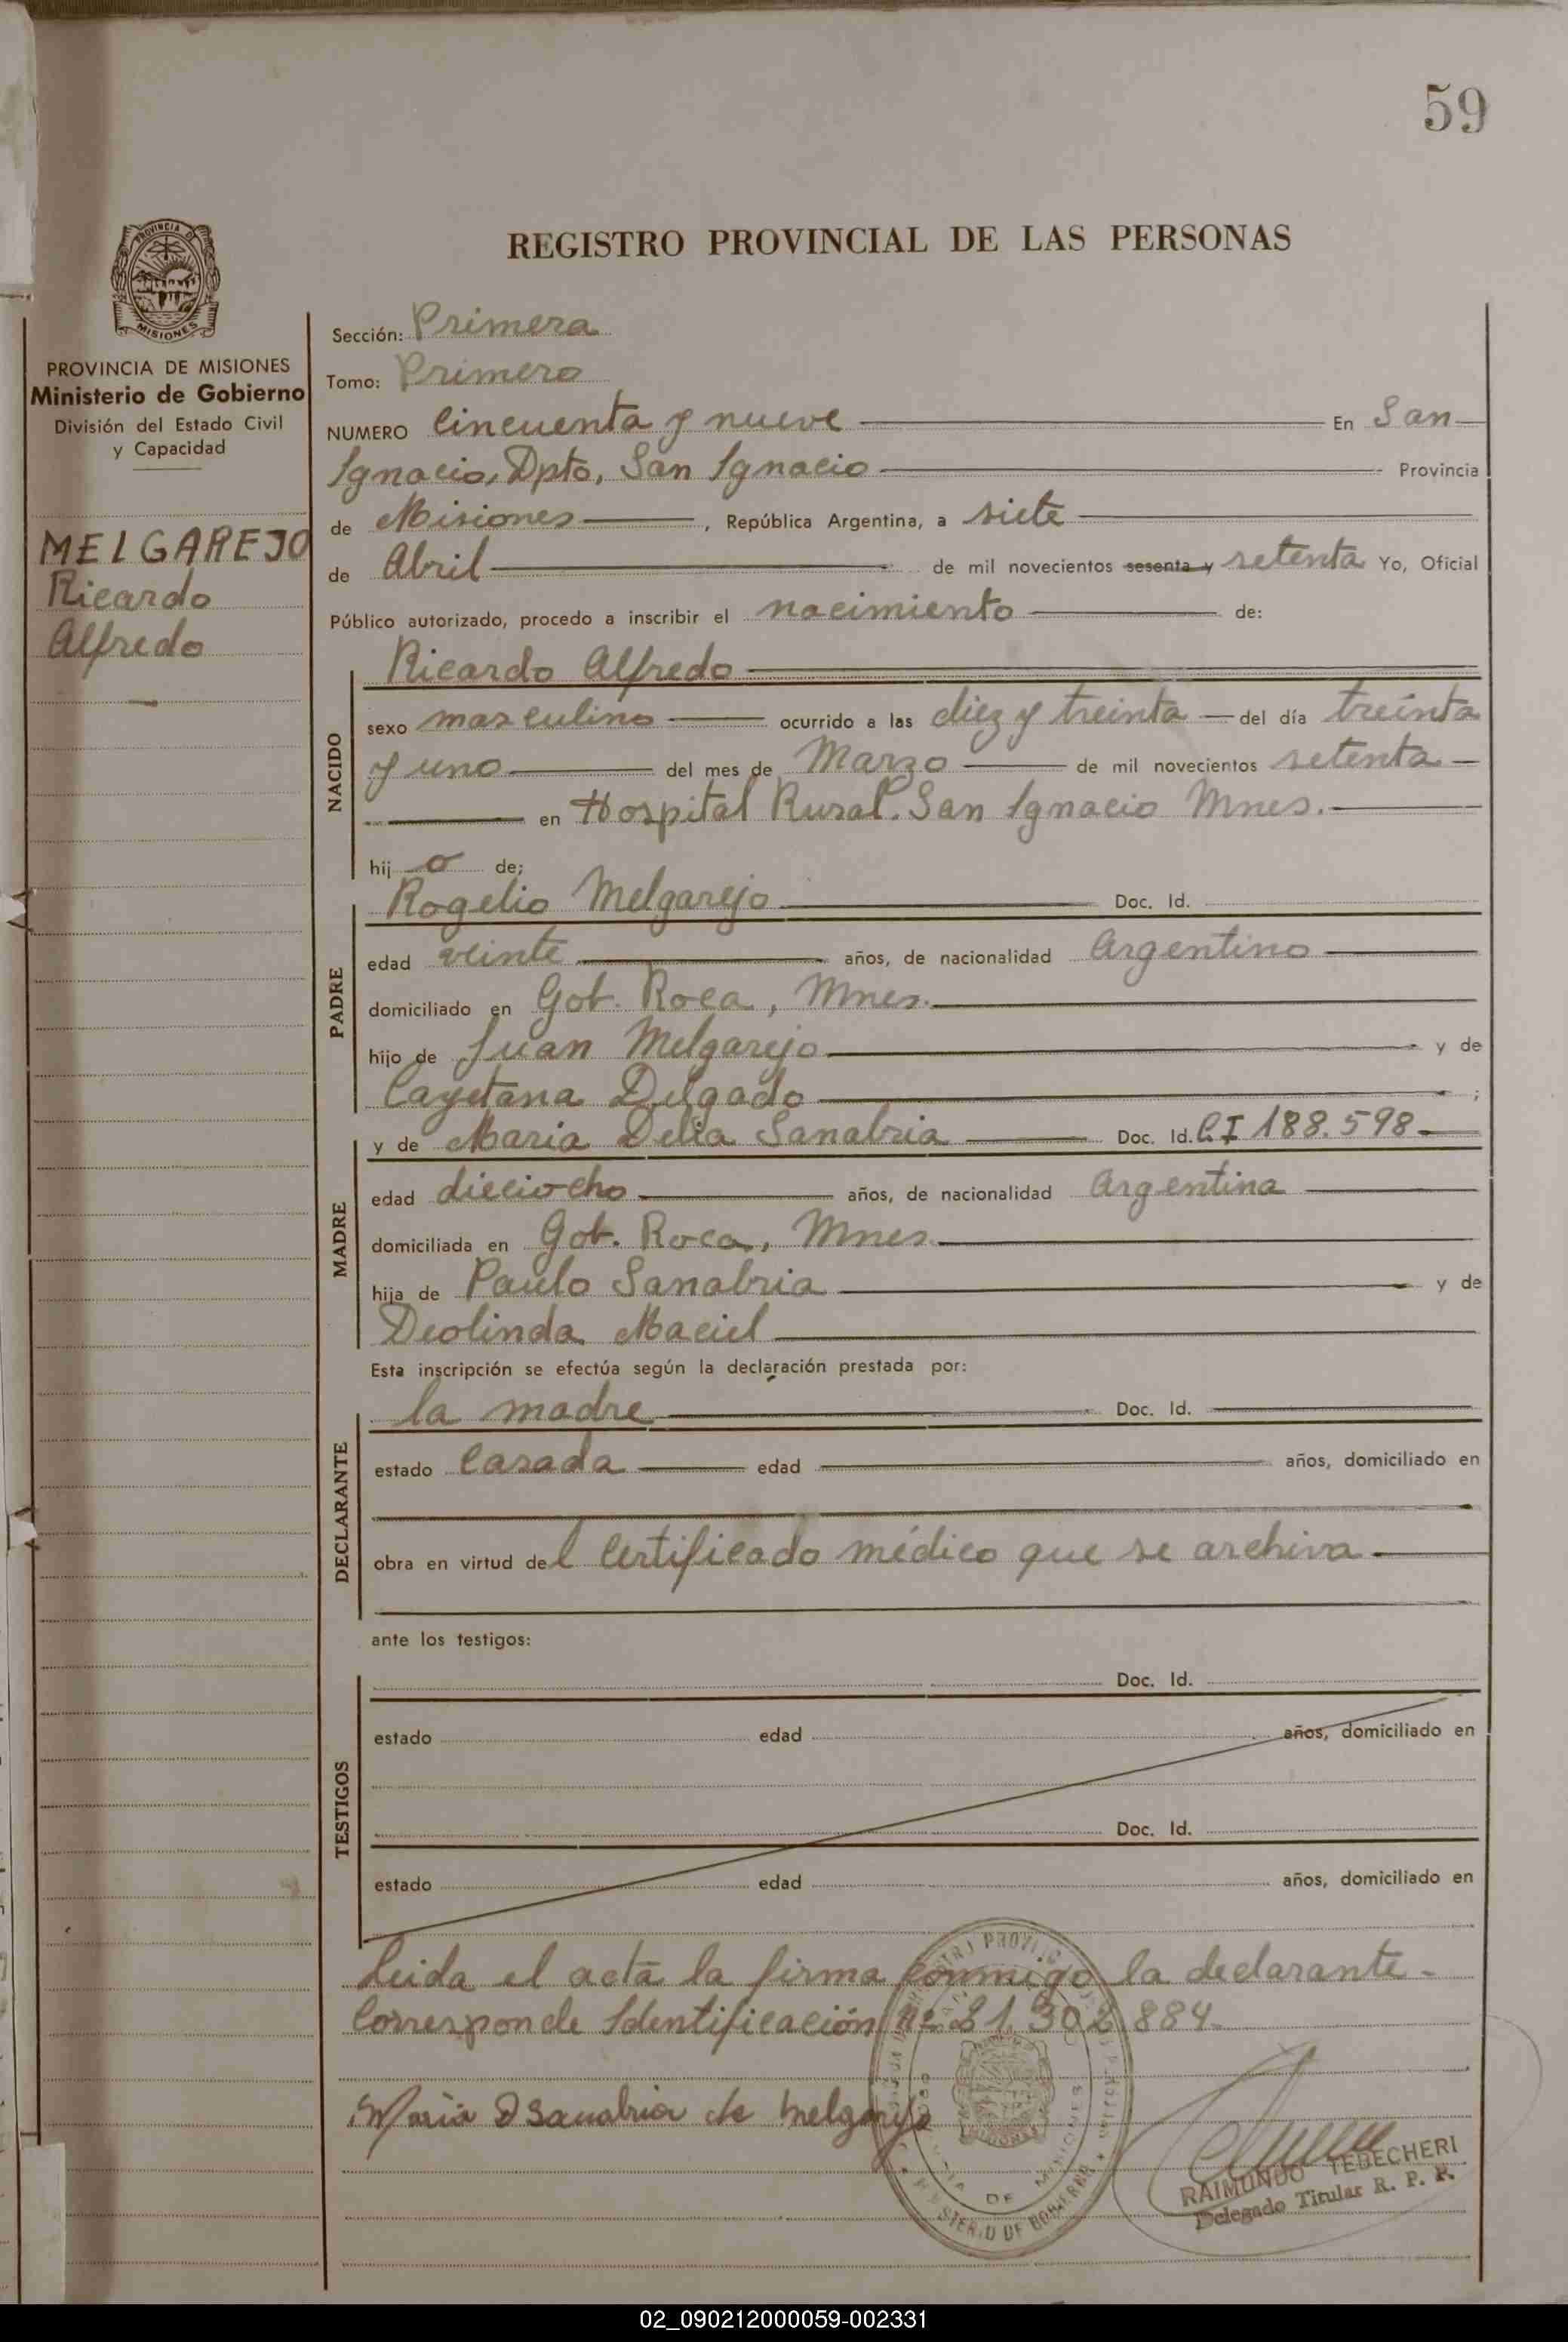 59
REGISTRO PROVINCIAL DE LAS PERSONAS
PROVINCIA DE MISIONES
Ministerio de Gobierno
División del Estado Civil
y Capacidad
MELGAREJO
Ricardo
Alfredo
Sección: Primera
Tomo: Primero
NUMERO Cincuenta y nueve En San
Ignacio, Dpto, San Ignacio Provincia
de Misiones, República Argentina, a siete
de Abril de mil novecientos sesenta y setenta Yo, Oficial
Público autorizado, procedo a inscribir el nacimiento de:
NACIDO
Ricardo Alfredo
sexo masculino ocurrido a las diez y treinta del día treinta
y uno del mes de Marzo de mil novecientos setenta
en Hospital Rural. San Ignacio Mnes.
hijo de;
PADRE
Rogelio Melgarejo Doc. Id.
edad veinte años, de nacionalidad Argentino
domiciliado en Gob. Roca, Mnes.
hijo de Juan Melgarejo y de
Cayetana Delgado ;
MADRE
y de Maria Delia Sanabria Doc. Id. C.I 188.598
edad dieciocho años, de nacionalidad Argentina
domiciliada en Gob. Roca, Mnes.
hija de Paulo Sanabria y de
Deolinda Maciel
Esta inscripción se efectúa según la declaración prestada por:
DECLARANTE
la madre Doc. Id.
estado Casada edad años, domiciliado en
obra en virtud del Certificado médico que se archiva
ante los testigos:
TESTIGOS
Doc. Id.
estado edad años, domiciliado en
Doc. Id.
estado edad años, domiciliado en
Leida el acta la firma conmigo la declarante
Corresponde Identificación nº 21.302.884
Maria D Sanabria de Melgarejo
RAIMUNDO TEDECHERI
Delegado Titular R. P. P.
02_090212000059-002331